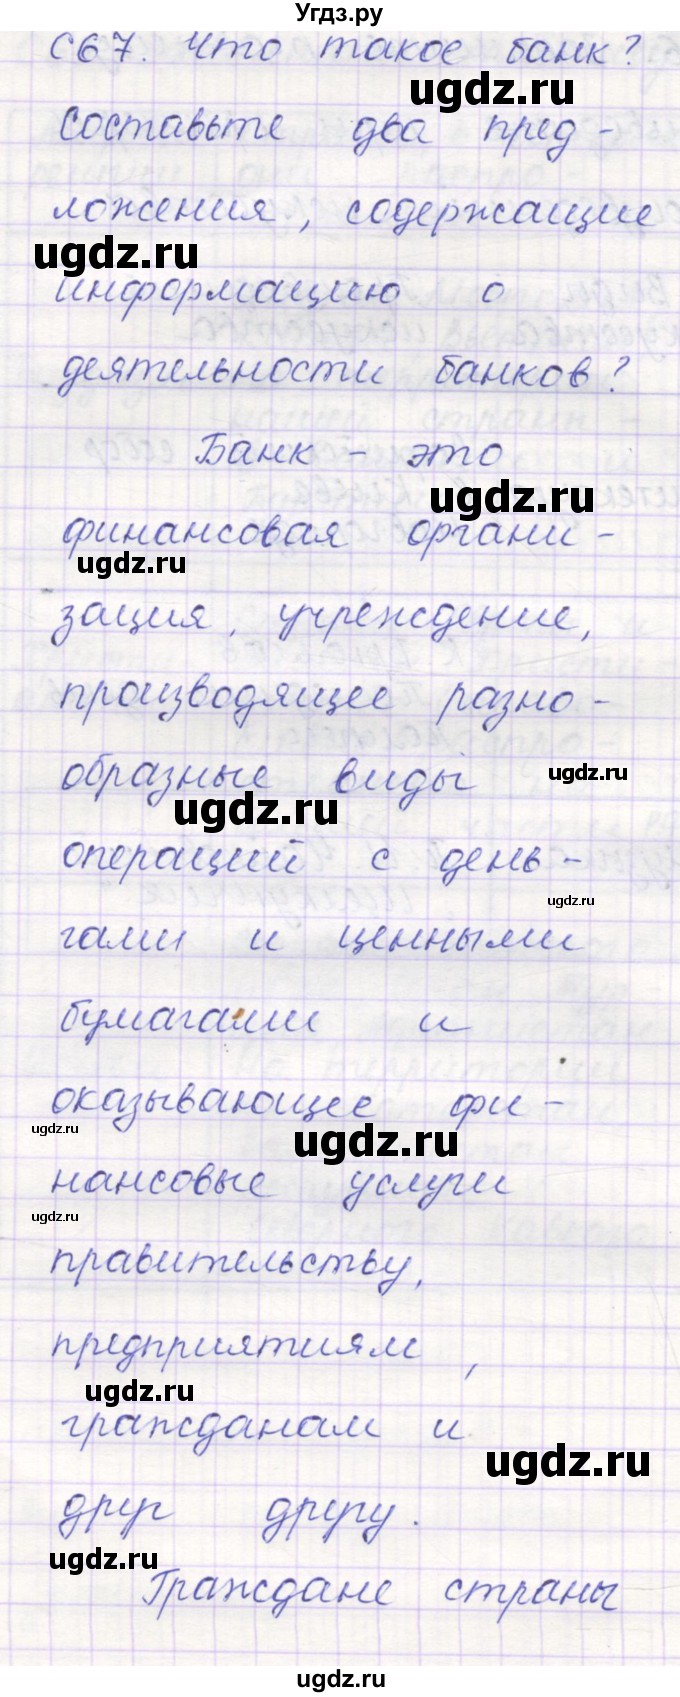 Угдз.ру
С67. Что такое банк?
ugdz.ru
Составьте два пред-
ложения, содержащие
ugdz.ru
информацию о
деятельности банков?
Банк - это
ugdz.ru
финансовая органи-
ugdz.ru
зация, учреждение,
производящее разно-
образные виды
ugdz.ru
ugdz.ru
операций с день-
ugdz.ru
гами и ценными
бумагами и
оказывающее фи-
ugdz.ru
ugdz.ru
нансовые услуги
ugdz.ru
правительству,
предприятиям,
ugdz.ru
гражданам и
ugdz.ru
друг другу.
ugdz.ru
Граждане страны
ugdz.ru